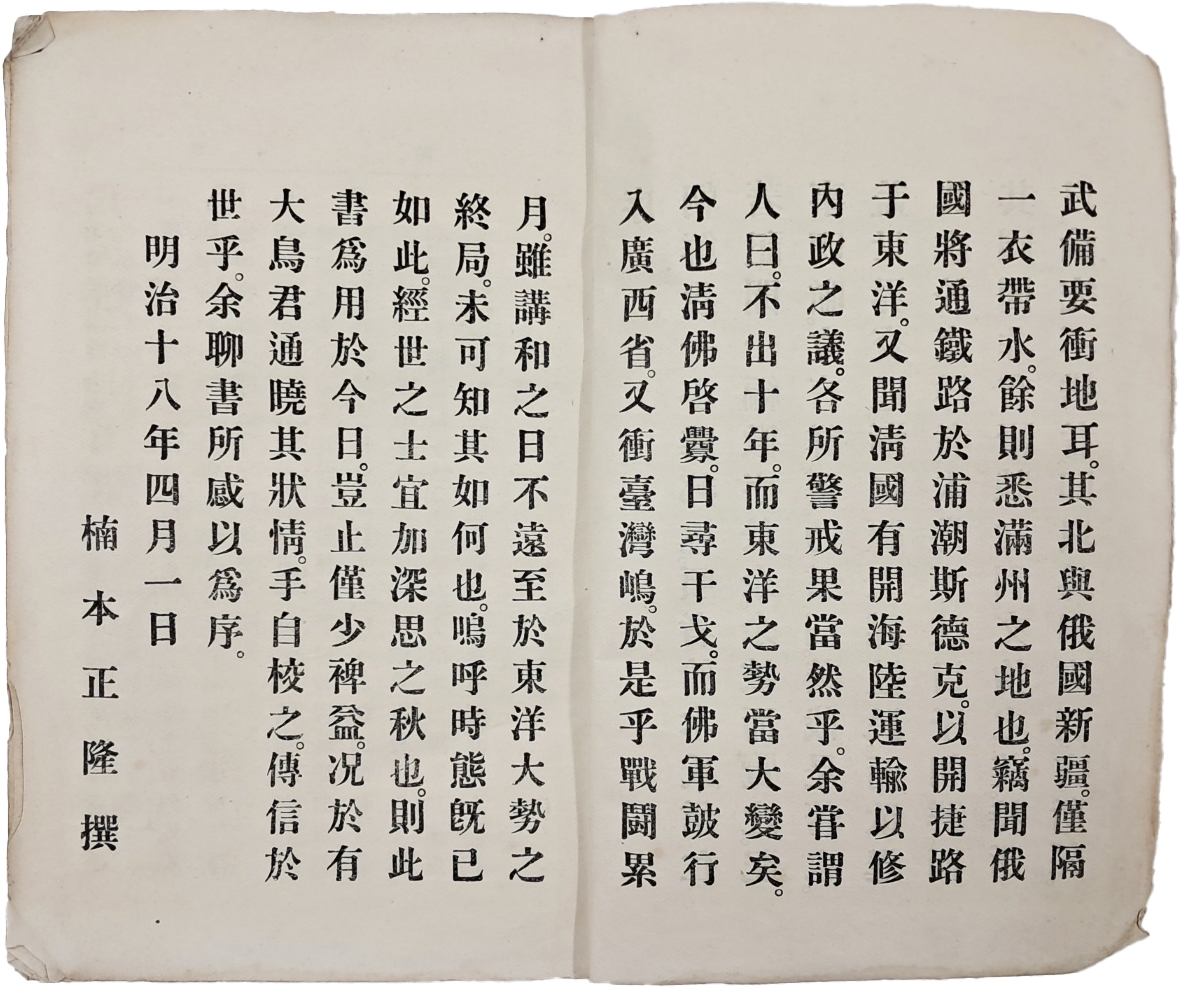 武備要衝地耳。其北與俄國新疆。僅隔
一衣帶水。餘則悉滿州之地也。竊聞俄
國將通鐵路於浦潮斯德克。以開捷路
于東洋。又聞淸國有開海陸運輸以修
內政之議。各所警戒果當然乎。余甞謂
人曰。不出十年。而東洋之勢當大變矣。
今也淸佛啓釁。日尋干戈。而佛軍皷行
入廣西省。又衝臺灣嶋。於是乎戰鬪累
月。雖講和之日不遠至於東洋大勢之
終局。未可知其如何也。嗚呼時態旣已
如此。經世之士宜加深思之秋也。則此
書爲用於今日。豈止僅少裨益。况於有
大鳥君通曉其狀情。手自校之。傳信於
世乎。余聊書所感以爲序。
明治十八年四月一日
楠本正隆撰